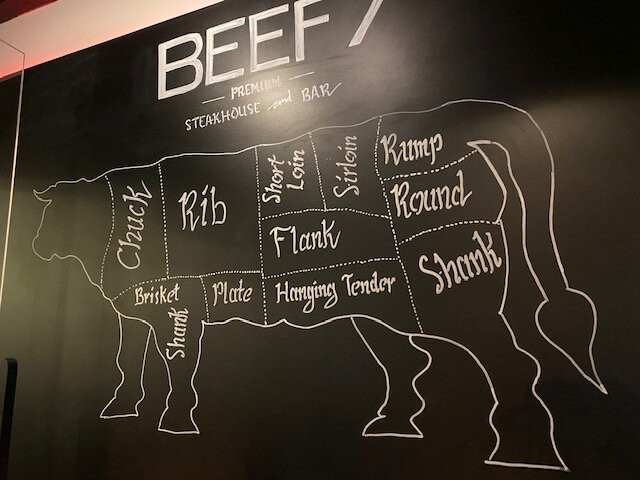 BEEF7
PREMIUM
STEAKHOUSE and BAR
Chuck
Rib
Short
Loin
Sirloin
Rump
Round
Flank
Shank
Brisket
Plate
Hanging Tender
Shank